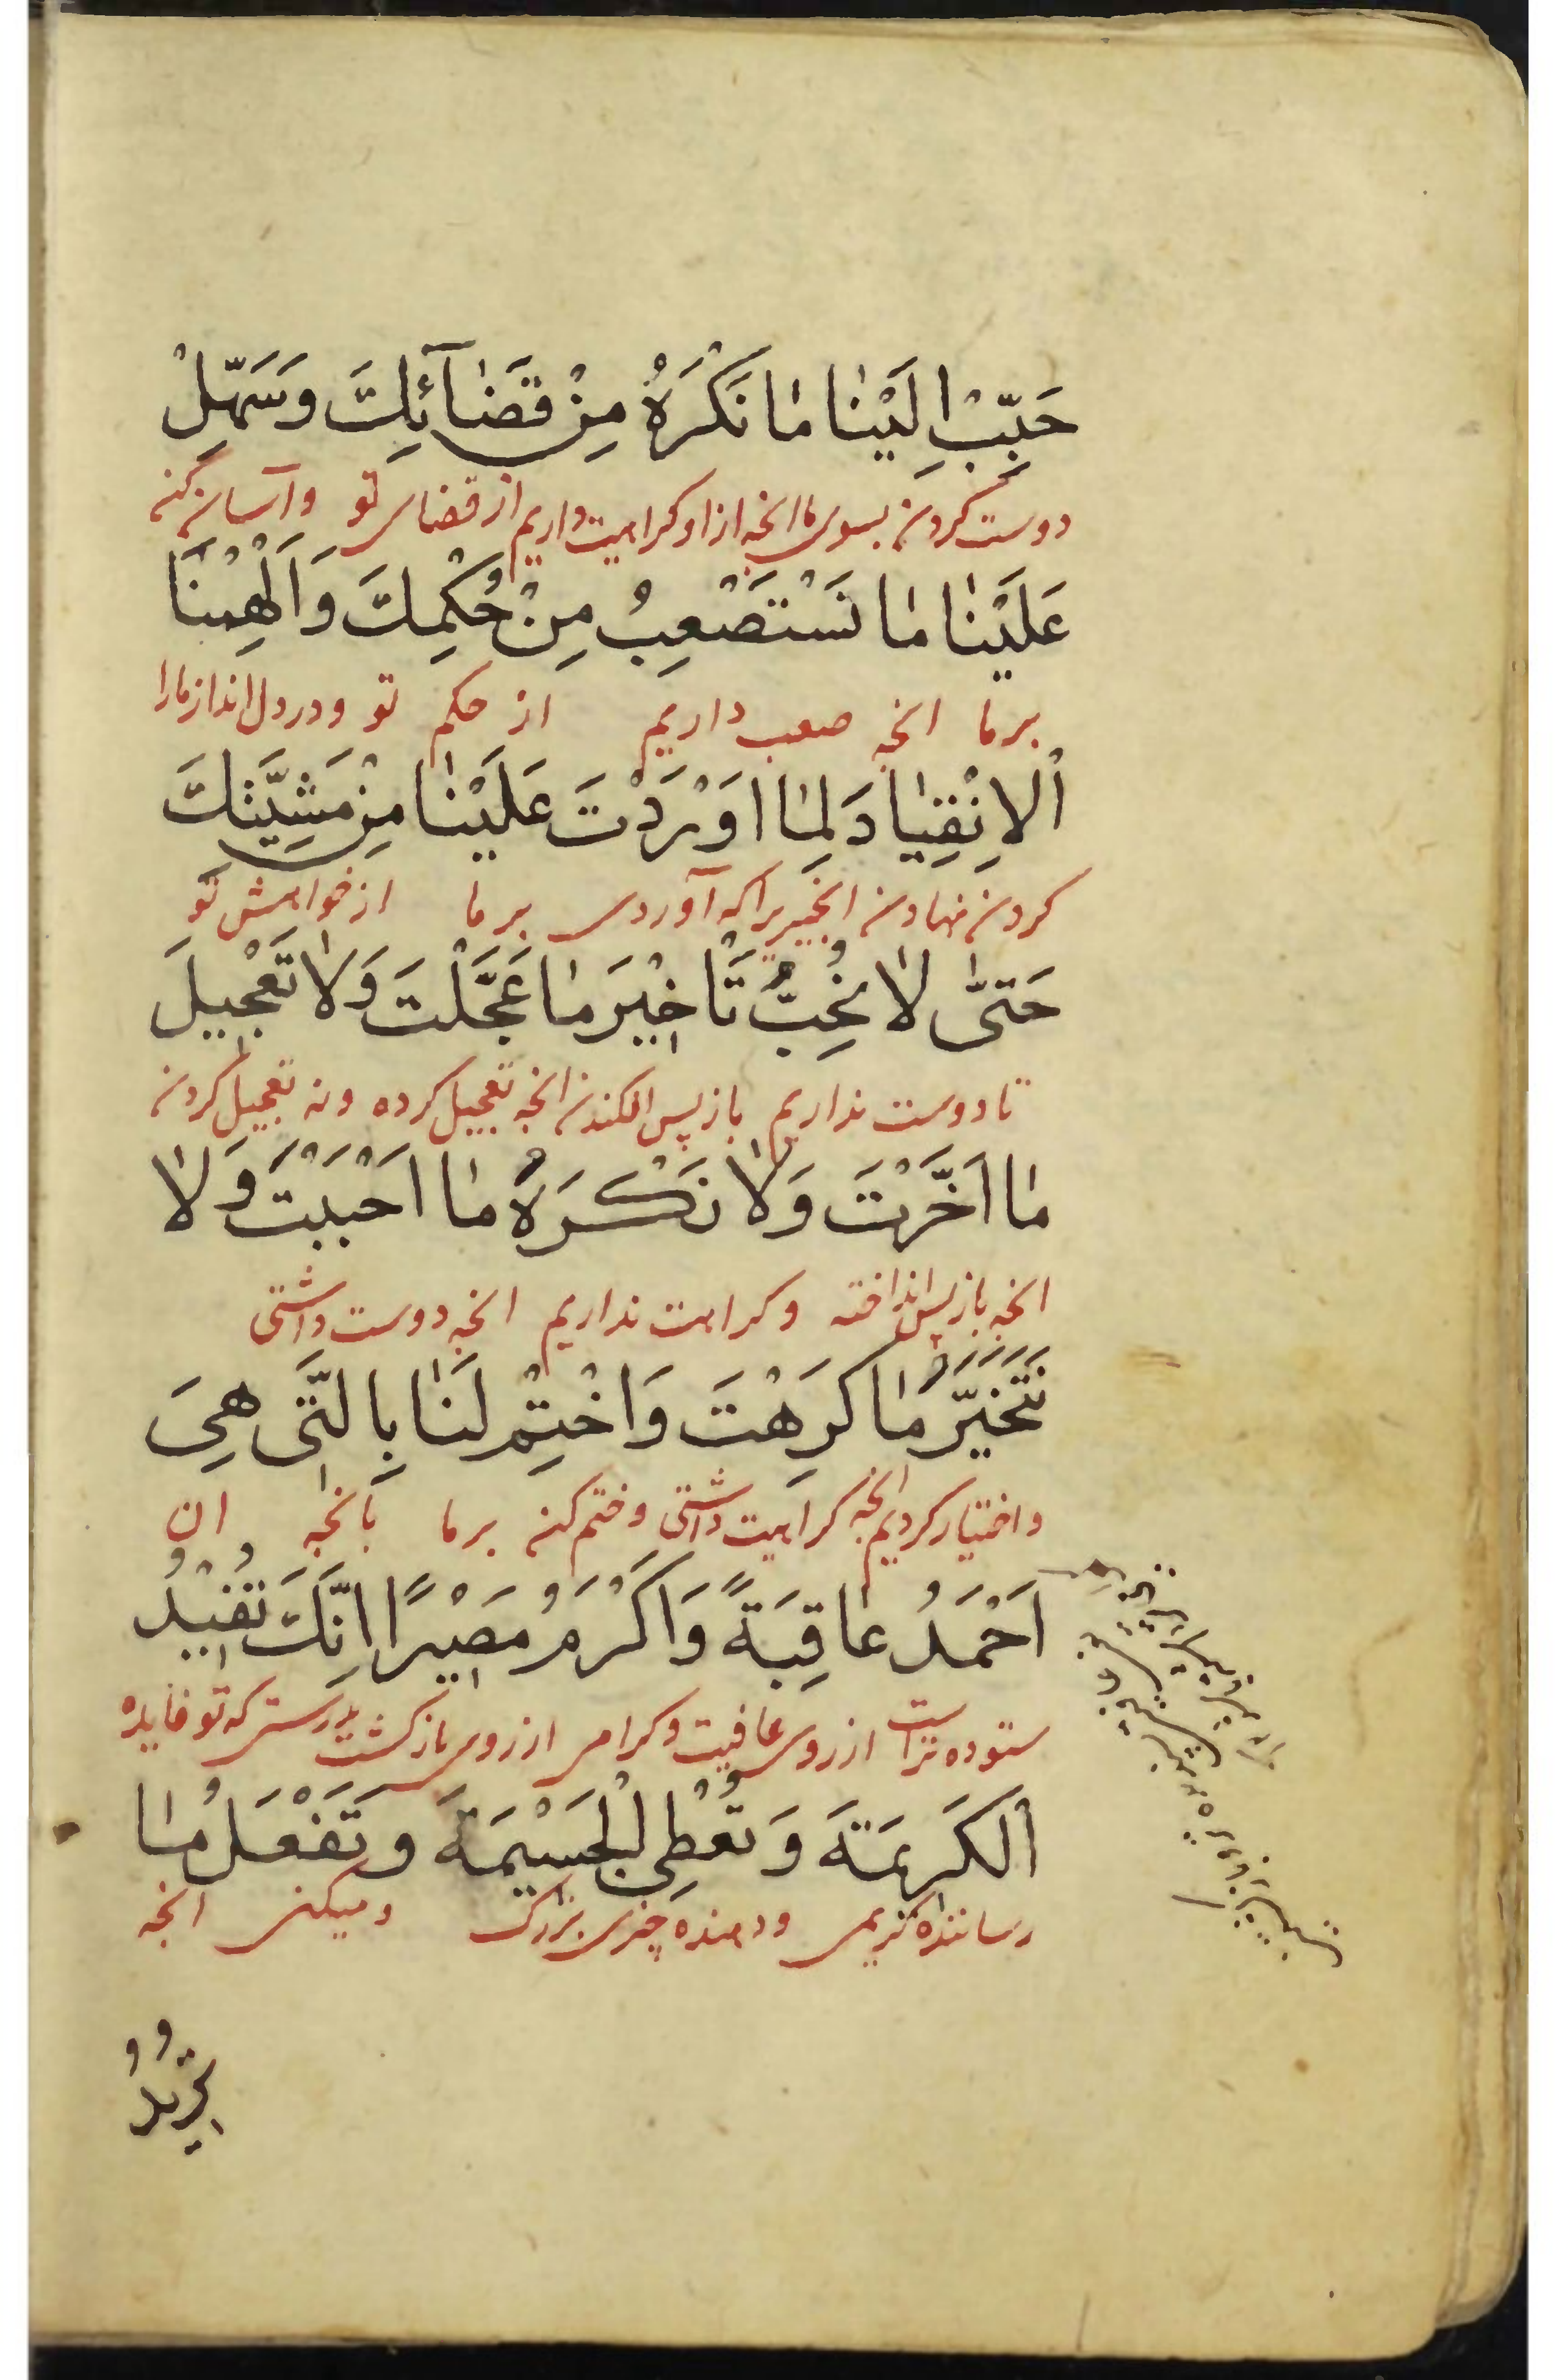 حَبِّبْ اِلَيْنٰا مٰا نَكْرَهُ مِنْ قَضٰآئِكَ وَسَهِّلْ
دوست کردن بسوی ما انچه از او کراهیت داریم از قضای تو وآسان کن
عَلَيْنٰا مٰا نَسْتَصْعِبُ مِنْ حُكْمِكَ وَاَلْهِمْنَا
بر ما انچه صعب داریم از حکم تو ودر دل انداز مارا
اْلاِنْقِيٰادَ لِمٰا اَوْرَدْتَ عَلَيْنٰا مِنْ مَشِيَّتِكَ
کردن نهادن انچیزیرا که آوردی بر ما از خواهش تو
حَتىّٰ لاٰ نُحِبُّ تَاْخٖيرَ مٰا عَجَّلْتَ وَلاٰ تَعْجٖيلَ
تا دوست نداریم باز پس افکندن انچه تعجیل کرده ونه تعجیل کردن
مٰا اَخَّرْتَ وَلاٰ نَكْرَهُ مٰا اَحْبَبْتَ وَلاٰ
انچه باز پس انداخته وکراهت نداریم انچه دوست داشتی
نَتَخَيَّرَ مٰا كَرِهْتَ وَاخْتِمْ لَنٰا بِالَّتٖى هِيَ
واختیار کردیم انچه کراهیت داشتی وختم کن بر ما بانچه ان
اَحْمَدُ عٰاقِبَةً وَاَكْرَمُ مَصٖيْرًا اِنَّكَ تُفٖيْدُ
ستوده تراست از روی عافیت وکرامی از روی بازکشت بدرستی که تو فایده
اْلكَرٖيمَةَ وَتُعْطِى الْجَسٖيْمَةَ وَتَفْعَلُ مٰا
رساننده کریمی ودهنده چیزی بزرک ومیکنی انچه
تُرٖيدُ